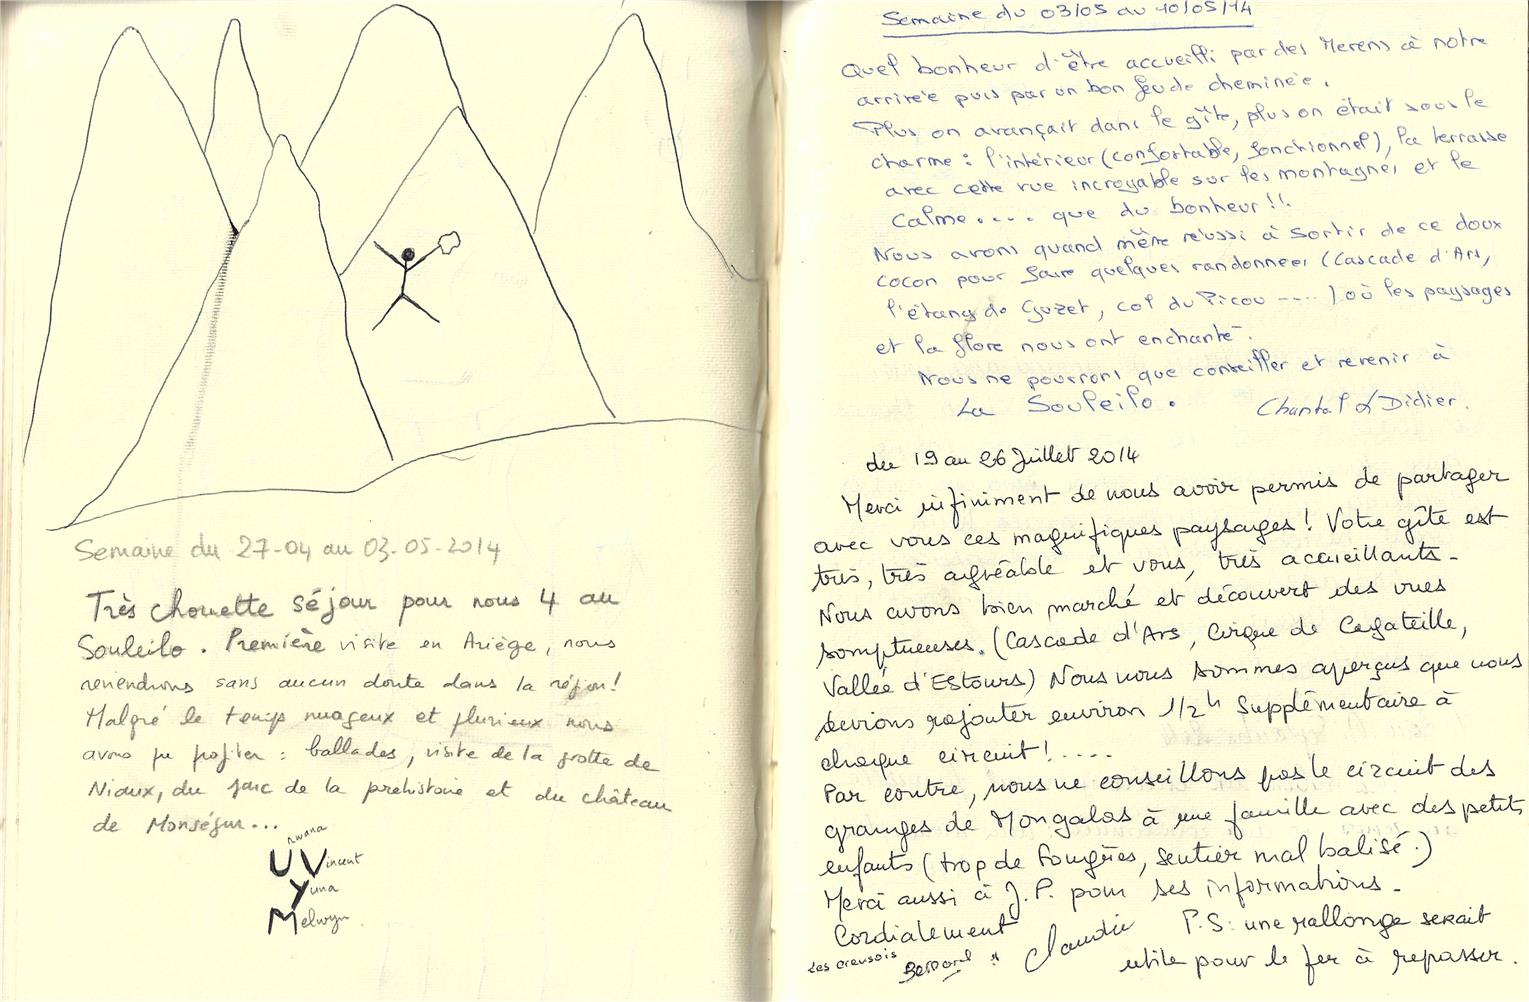 Semaine du 27-04 au 03-05-2014
Très chouette séjour pour nous 4 au
Souleilo. Première visite en Ariège, nous
reviendrons sans aucun doute dans la région!
Malgré le temps nuageux et pluvieux nous
avons pu profiter : ballades, visite de la grotte de
Niaux, du parc de la préhistoire et du château
de Monségur...
Urwana
Vincent
Yuna
Melwyn.
Semaine du 03/05 au 10/05/14
Quel bonheur d'être accueilli par des Merens à notre
arrivée puis par un bon feu de cheminée.
Plus on avançait dans le gîte, plus on était sous le
charme : l'intérieur (confortable, fonctionnel), la terrasse
avec cette vue incroyable sur les montagnes et le
calme.... que du bonheur!!
Nous avons quand même réussi à sortir de ce doux
cocon pour faire quelques randonnées (Cascade d'Ars,
l'étang de Guzet, col du Picou ....) où les paysages
et la flore nous ont enchanté.
Nous ne pourrons que conseiller et revenir à
La Souleilo. Chantal & Didier.
du 19 au 26 Juillet 2014
Merci infiniment de nous avoir permis de partager
avec vous ces magnifiques paysages! Votre gîte est
très, très agréable et vous, très accueillants.
Nous avons bien marché et découvert des vues
somptueuses. (Cascade d'Ars, Cirque de Cagateille,
Vallée d'Estours) Nous nous sommes aperçus que nous
devions rajouter environ 1/2h supplémentaire à
chaque circuit!....
Par contre, nous ne conseillons pas le circuit des
granges de Mongalas à une famille avec des petits
enfants (trop de fougères, sentier mal balisé.)
Merci aussi à J.P. pour ses informations.
Cordialement
Les creusois Bernard et Claudie
P.S: une rallonge serait
utile pour le fer à repasser.